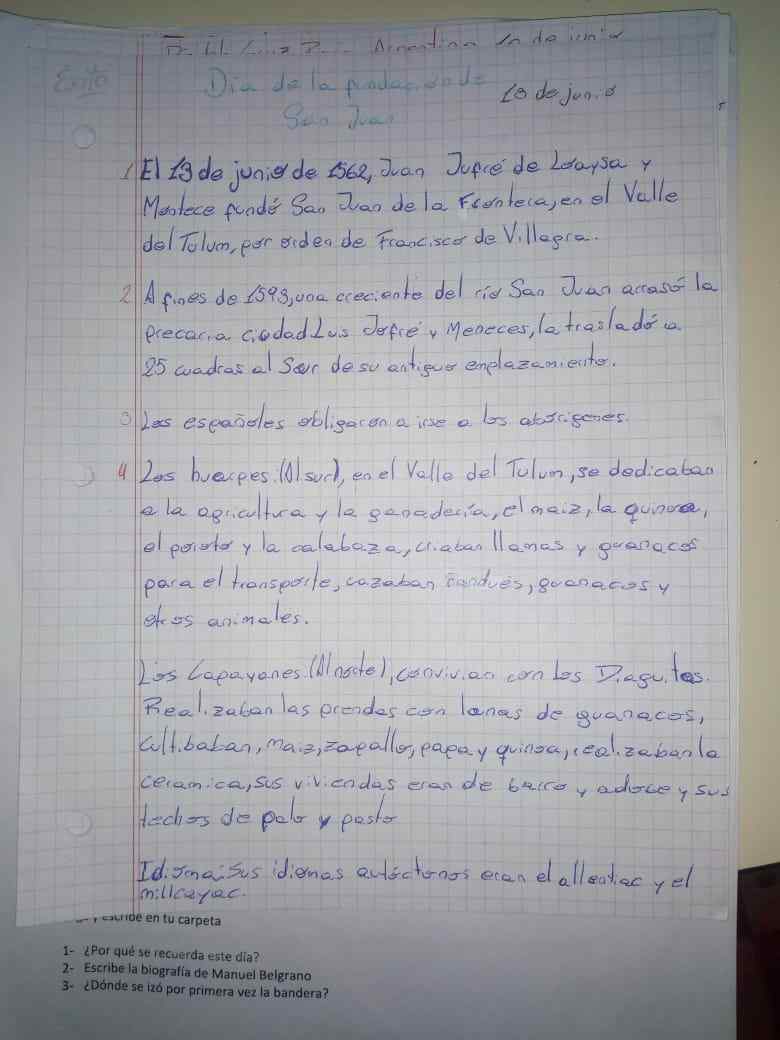 Argentina 10 de junio
Éxito
Día de la fundación de
San Juan
10 de junio
1 El 13 de junio de 1562, Juan Jufré de Loaysa y
Montece fundó San Juan de la Frontera, en el Valle
del Tulum, por orden de Francisco de Villagra.
2 A fines de 1593, una creciente del río San Juan arrasó la
precaria ciudad Luis Jofré y Meneces, la trasladó a
25 cuadras al Sur de su antiguo emplazamiento.
3 Los españoles obligaron a irse a los aborigenes.
4 Los huarpes: (Al sur), en el Valle del Tulum, se dedicaban
a la agricultura y la ganadería, el maiz, la quinoa,
el poroto y la calabaza, criaban llamas y guanacos
para el transporte, cazaban ñandués, guanacos y
otros animales.
Los Capayanes: (Al norte), convivian con los Diaguitas.
Realizaban las prendas con lanas de guanacos,
Cultibaban, maiz, zapallo, papa y quinoa, realizaban la
ceramica, sus viviendas eran de barro y adobe y sus
techos de palo y pasto
Idioma: Sus idiomas autóctonos eran el allentiac y el
millcayac.
escribe en tu carpeta
1- ¿Por qué se recuerda este día?
2- Escribe la biografía de Manuel Belgrano
3- ¿Dónde se izó por primera vez la bandera?